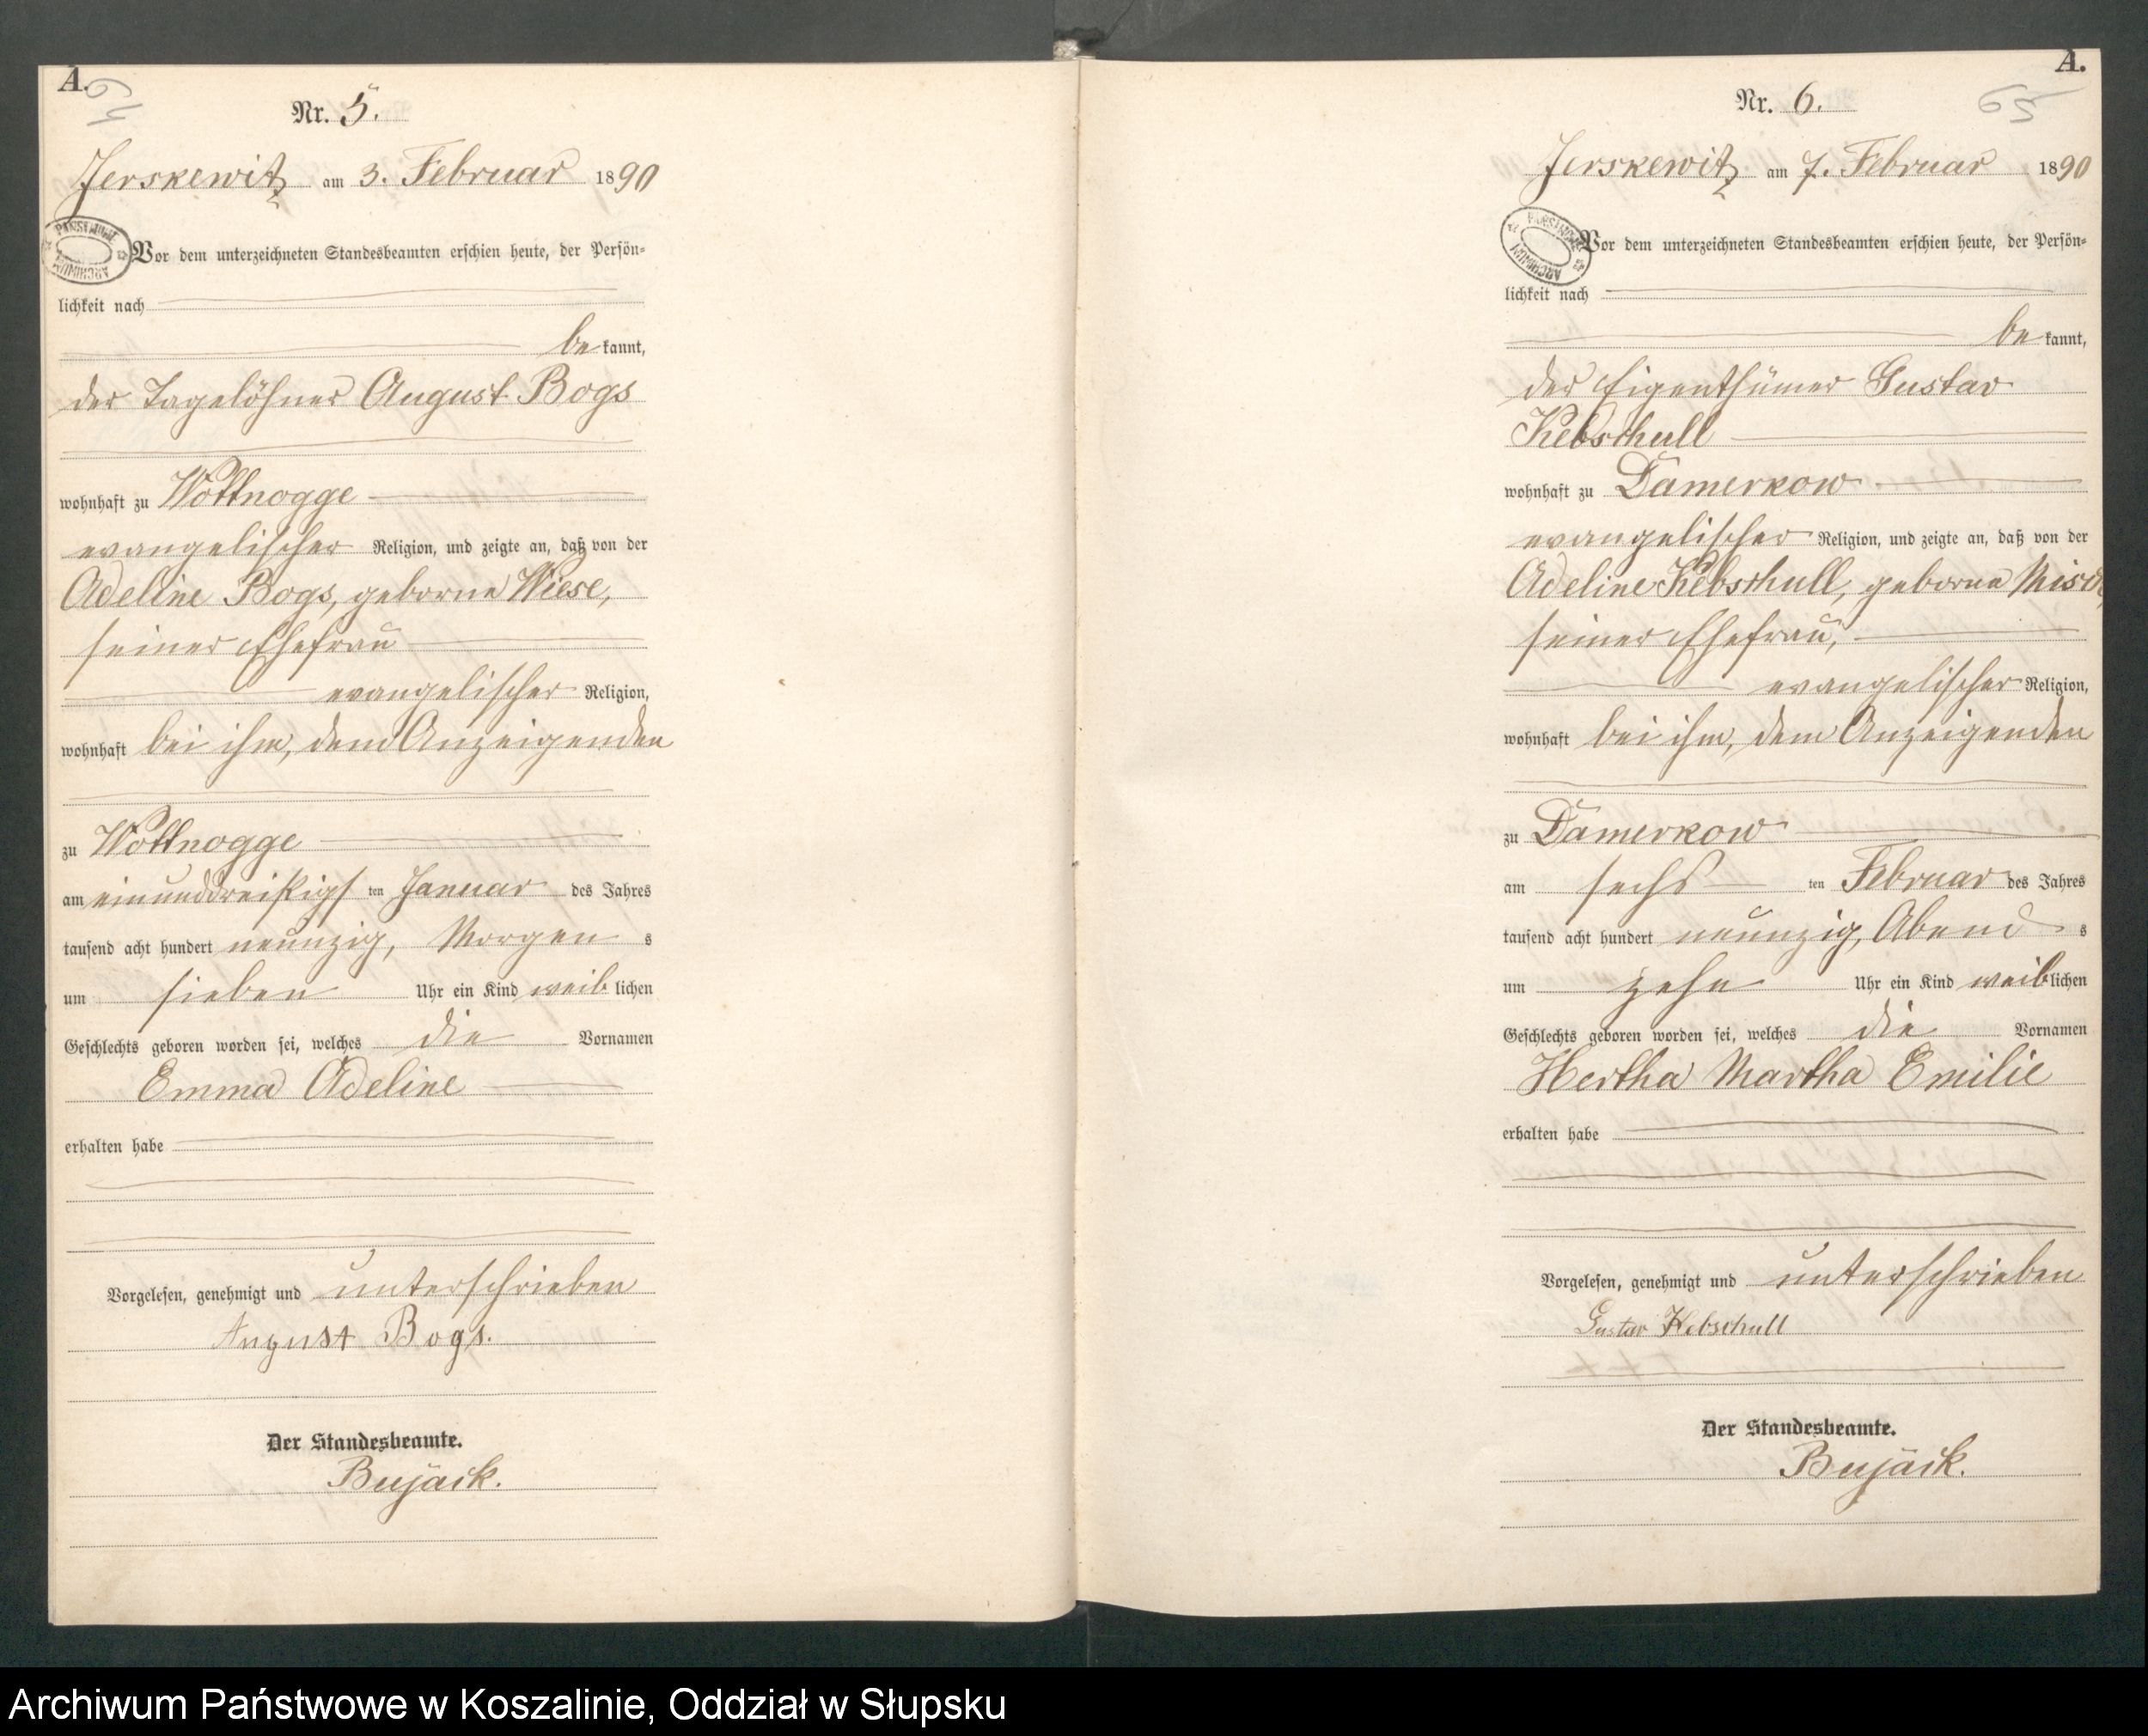 A.
64
Nr. 5.
Jerskewitz am 3. Februar 1890
PAŃSTWOWE
ARCHIWUM
Vor dem unterzeichneten Standesbeamten erschien heute, der Persön-
lichkeit nach
be kannt,
der Tagelöhner August Bogs
wohnhaft zu Wottnogge
evangelischer Religion, und zeigte an, daß von der
Adeline Bogs, geborne Wiese,
seiner Ehefrau
evangelischer Religion,
wohnhaft bei ihm, dem Anzeigenden
zu Wottnogge
am einunddreißigs ten Januar des Jahres
tausend acht hundert neunzig, Morgen s
um sieben Uhr ein Kind weib lichen
Geschlechts geboren worden sei, welches die Vornamen
Emma Adeline
erhalten habe
Vorgelesen, genehmigt und unterschrieben
August Bogs.
Der Standesbeamte.
Bujack.
A.
65
Nr. 6.
Jerskewitz am 7. Februar 1890
PAŃSTWOWE
ARCHIWUM
Vor dem unterzeichneten Standesbeamten erschien heute, der Persön-
lichkeit nach
be kannt,
der Eigenthümer Gustav
Kebschull
wohnhaft zu Damerkow
evangelischer Religion, und zeigte an, daß von der
Adeline Kebschull, geborne
seiner Ehefrau,
evangelischer Religion,
wohnhaft bei ihm, dem Anzeigenden
zu Damerkow
am sechs ten Februar des Jahres
tausend acht hundert neunzig, Abend s
um zehn Uhr ein Kind weib lichen
Geschlechts geboren worden sei, welches die Vornamen
Hertha Martha Emilie
erhalten habe
Vorgelesen, genehmigt und unterschrieben
Gustav Kebschull
Der Standesbeamte.
Bujack.
Archiwum Państwowe w Koszalinie, Oddział w Słupsku